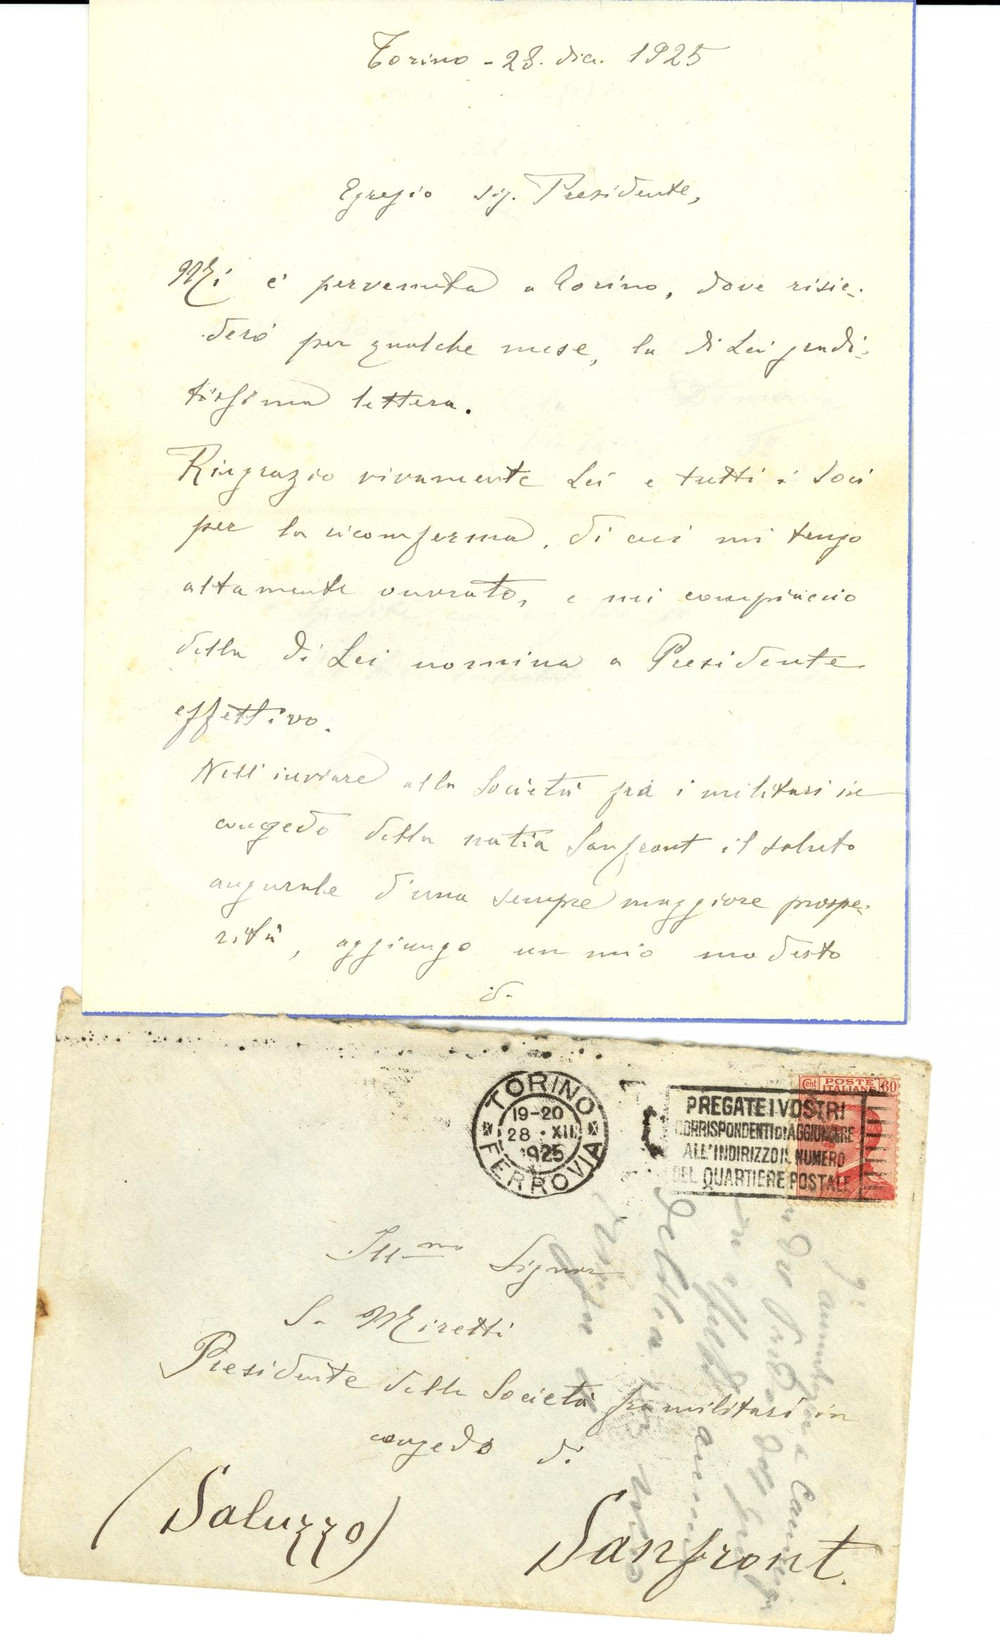 Torino - 28. dic. 1925
Egregio Sig. Presidente,
Mi è pervenuta a Torino, dove risie-
derò per qualche mese, la di Lei gradi-
tissima lettera.
Ringrazio vivamente Lei e tutti i Soci
per la riconferma, di cui mi tengo
altamente onorato, e mi compiaccio
della di Lei nomina a Presidente
effettivo.
Nell'inviare alla Società fra i militari in
congedo della natia Sanfront il saluto
augurale d'una sempre maggiore prospe-
rità, aggiungo un mio modesto
TORINO
19-20
28 · XII
1925
FERROVIA
PREGATE I VOSTRI
CORRISPONDENTI DI AGGIUNGERE
ALL'INDIRIZZO IL NUMERO
DEL QUARTIERE POSTALE
Cent POSTE ITALIANE 60
Ill.mo Signor
S. Miretti
Presidente della Società fra militari in
congedo di
(Saluzzo) Sanfront.